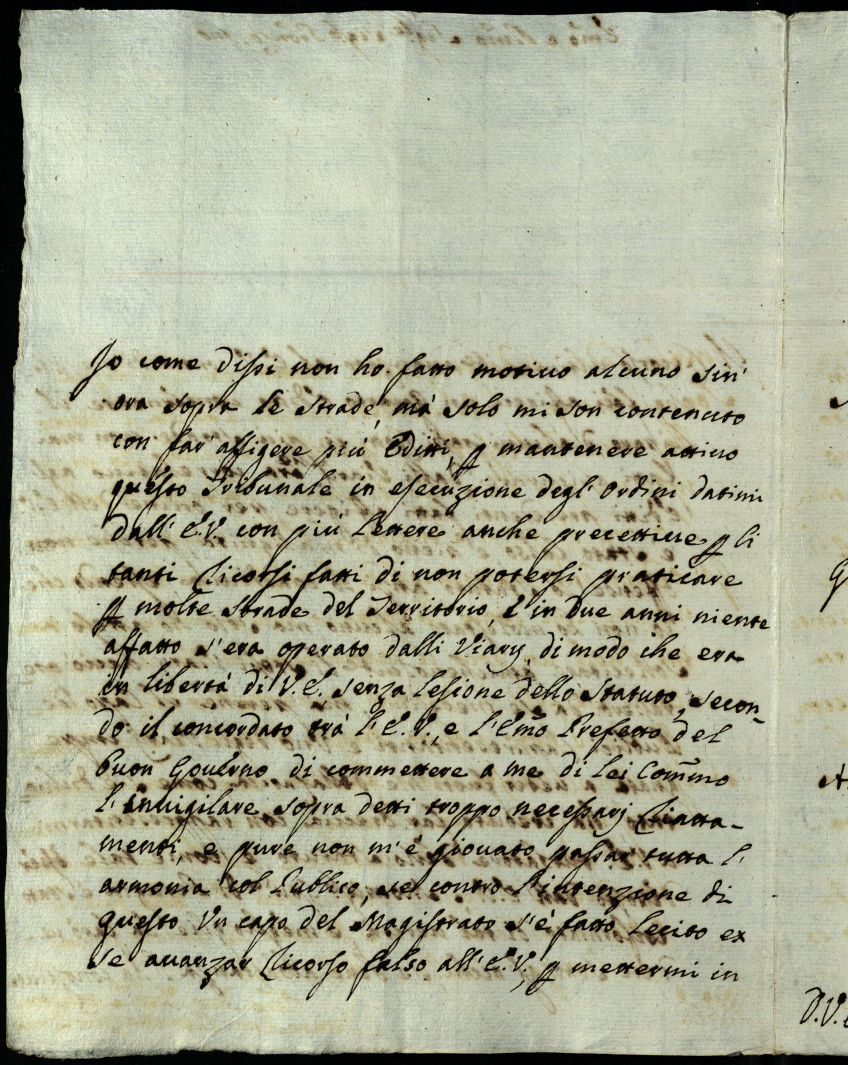 Io come dissi non ho fatto motivo alcuno sin'
ora sopra le strade, mà solo mi son contenuto
con far' affigere più Editti, p mantenere attivo
questo Tribunale in esecuzione degl' ordini datimi
dall' E.V. con più lettere anche precettive p li
tanti Ricorsi fatti di non potersi praticare
p molte strade del Territorio, e in due anni niente
affatto s'era operato dalli Viarij, di modo che era
in libertà di V.E. senza lesione dello Statuto, secon-
do il concordato trà l'E.V., e l'Emo Prefetto del
Buon Governo di commettere a me di lei Commo
l'invigilare sopra detti troppo necessarj Riatta-
menti, e pure non m'è giovato passar tutta l'
armonia col Publico, se contro l'intenzione di
questo Un capo del Magistrato s'è fatto lecito ex
se avanzar Ricorso falso all'E.V., p mettermi in
D.V.